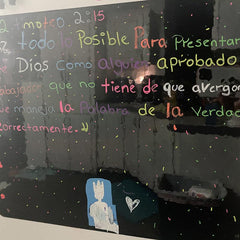 2 timoteo. 2:15
todo lo Posible Para Presentar
Dios como alguien aprobado
bajador que no tiene de que avergon
que maneja la Palabra de la Verdad
correctamente.